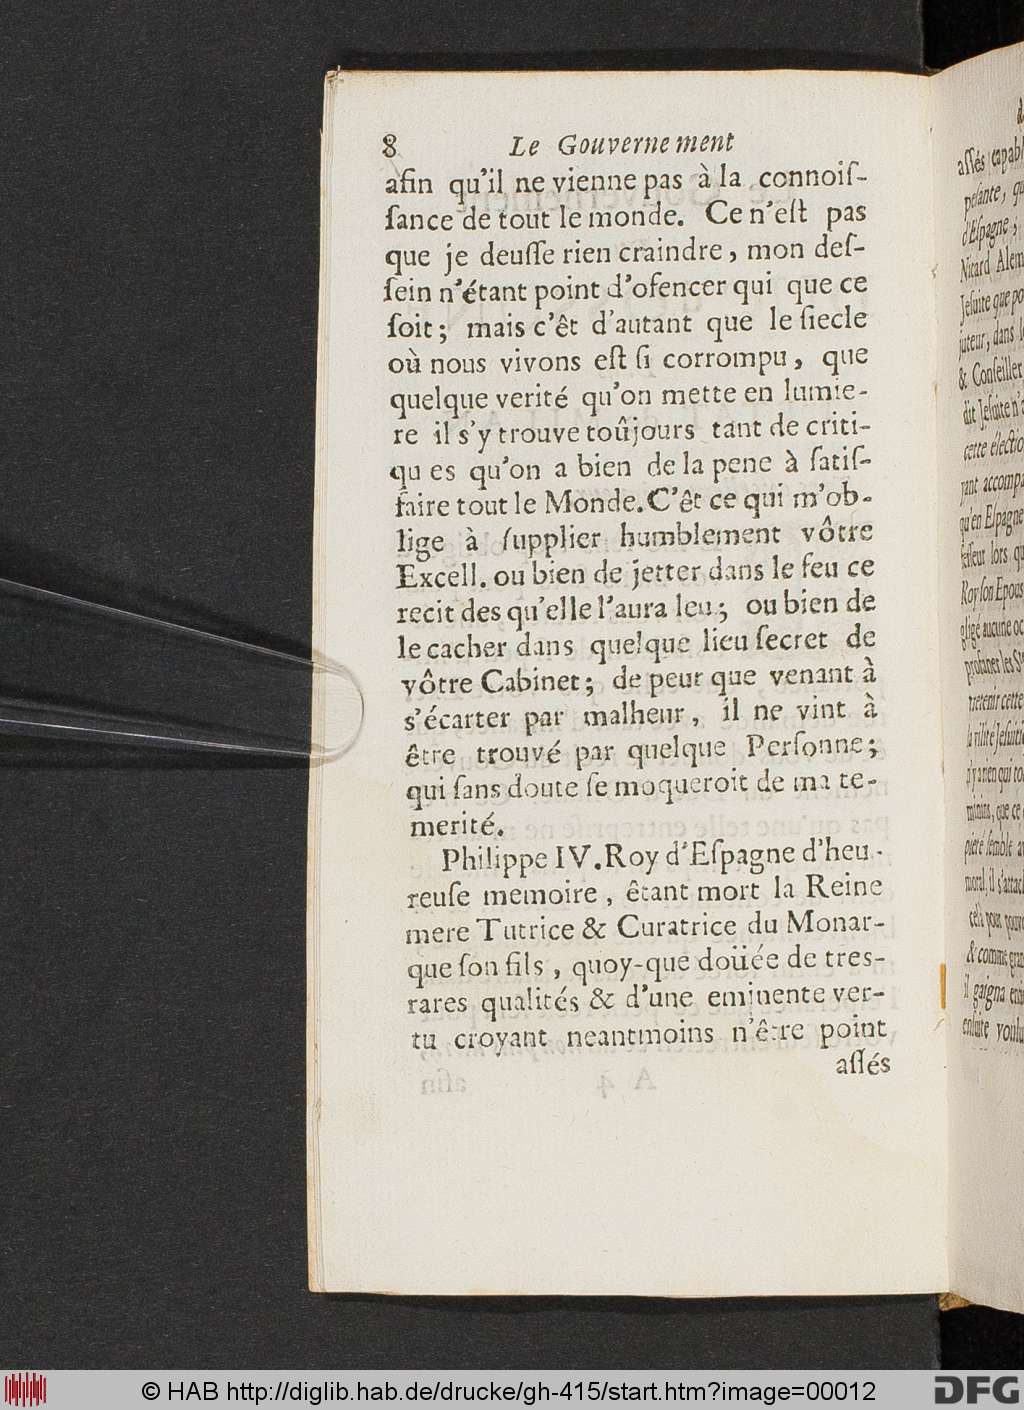 8 Le Gouvernement
afin qu'il ne vienne pas à la connoiſ-
ſance de tout le monde. Ce n'eſt pas
que je deuſſe rien craindre, mon deſ-
ſein n'étant point d'ofencer qui que ce
ſoit; mais c'êt d'autant que le ſiecle
où nous vivons eſt ſi corrompu, que
quelque verité qu'on mette en lumie-
re il s'y trouve toûjours tant de criti-
ques qu'on a bien de la pene à ſatiſ-
faire tout le Monde. C'êt ce qui m'ob-
lige à ſupplier humblement vôtre
Excell. ou bien de jetter dans le feu ce
recit des qu'elle l'aura leu; ou bien de
le cacher dans quelque lieu ſecret de
vôtre Cabinet; de peur que venant à
s'écarter par malheur, il ne vint à
être trouvé par quelque Perſonne;
qui ſans doute ſe moqueroit de ma te-
merité.
Philippe IV. Roy d'Eſpagne d'heu-
reuſe memoire, êtant mort la Reine
mere Tutrice & Curatrice du Monar-
que ſon fils, quoy-que doüée de tres-
rares qualités & d'une eminente ver-
tu croyant neantmoins n'être point
aſſés
aſſés
peſante,
d'Eſpagne;
Nicard
Jeſuite que
dans
& Conſeiller
dit Jeſuite
cette
qu'en Eſpagne
lors
Roy ſon Epous
aucune
cette
que ce
ſemblé
& comme
il gaigna
enſuite
© HAB http://diglib.hab.de/drucke/gh-415/start.htm?image=00012
DFG